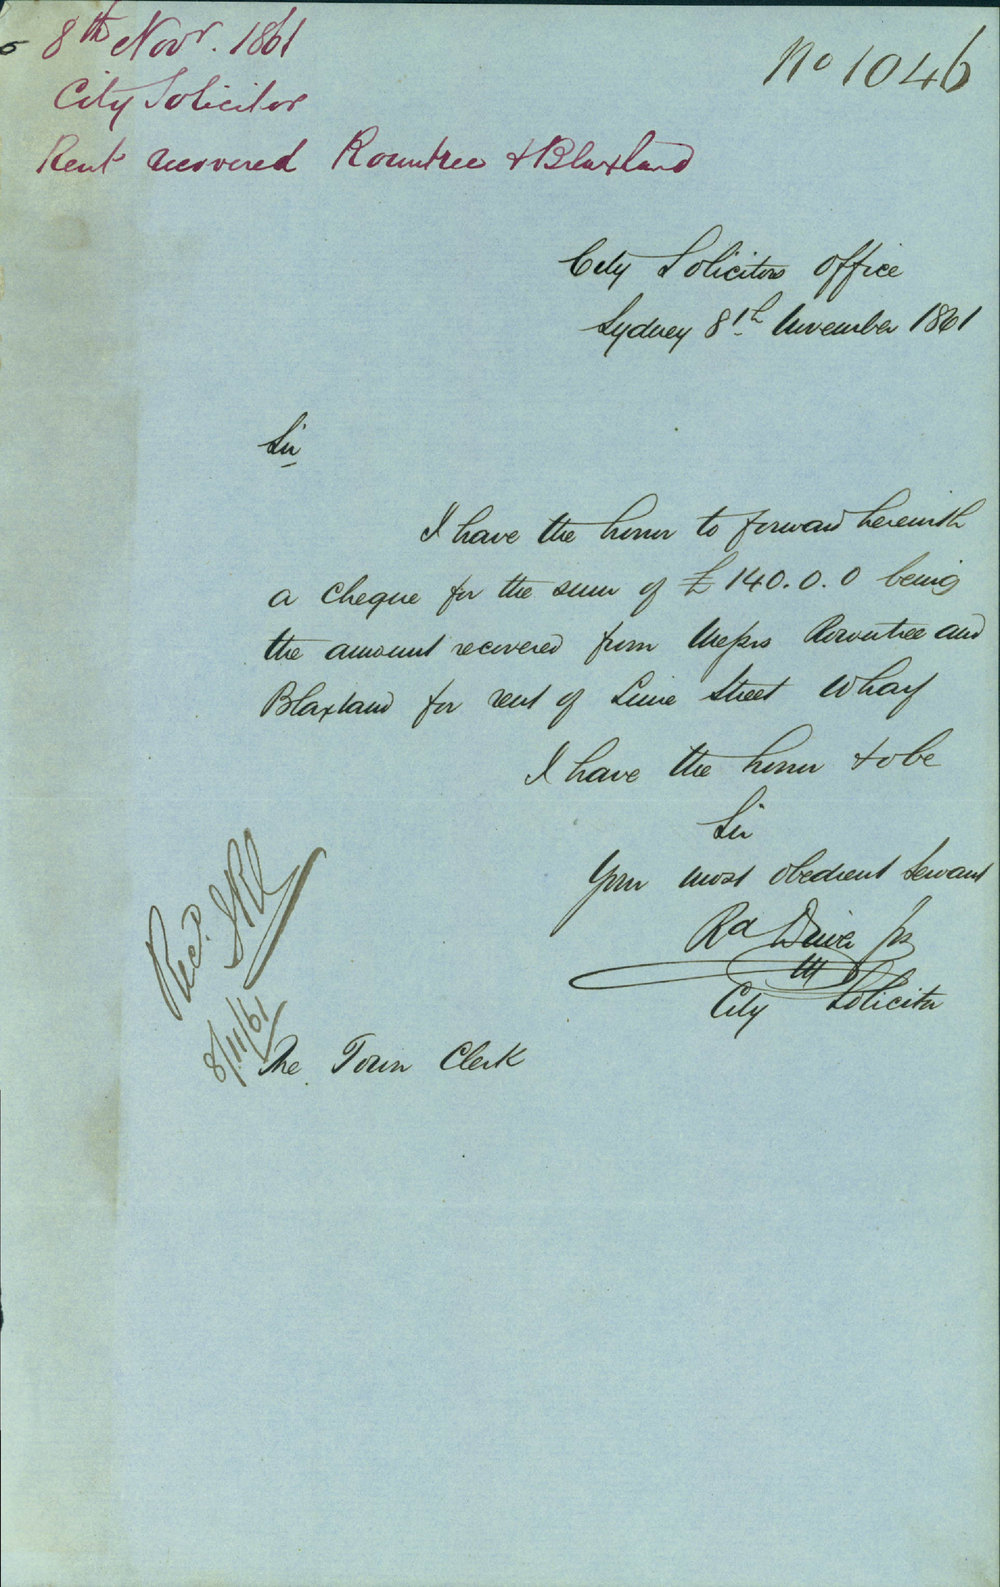 8th Novr. 1861
No 1046
City Solicitor
Rent recovered Rountree & Blaxland
City Solicitors Office
Sydney 8th November 1861
Sir
I have the honor to forward herewith
a cheque for the sum of £140.0.0 being
the amount recovered from Messrs Rowntree and
Blaxland for rent of Lime Street Wharf
I have the honor to be
Sir
Your most obedient Servant
Rd Driver Jr
City Solicitor
Recd.
8/11/61
The Town Clerk